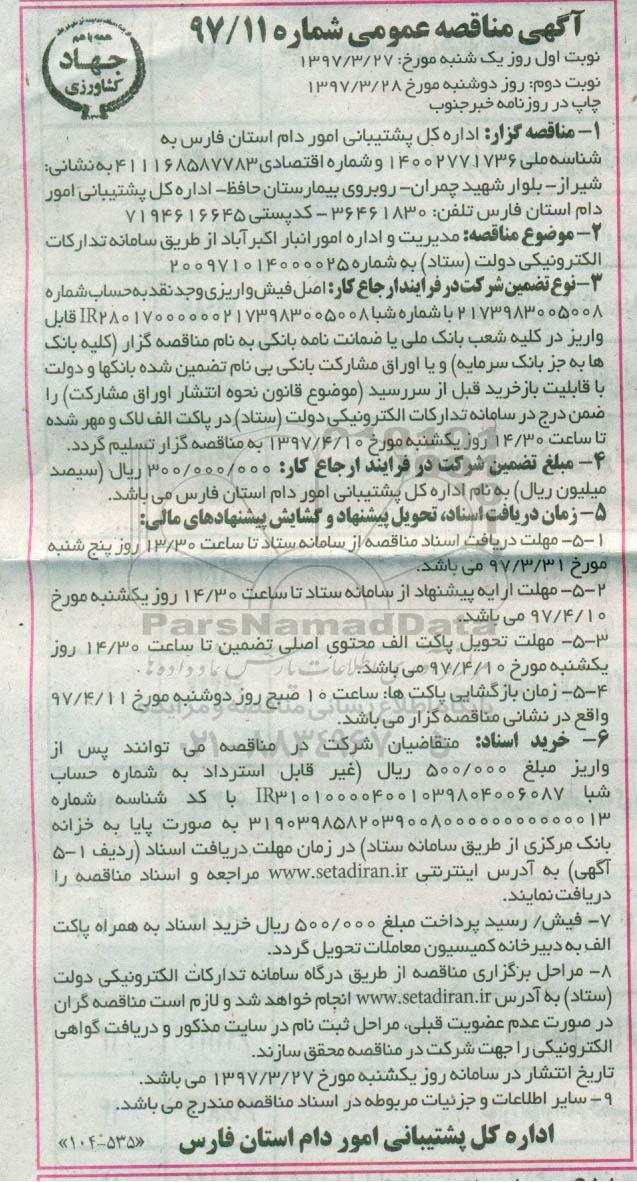 آگهی مناقصه عمومی شماره ۹۷/۱۱
همه با هم
جهاد
کشاورزی
نوبت اول روز یک شنبه مورخ: ۱۳۹۷/۳/۲۷
نوبت دوم: روز دوشنبه مورخ ۱۳۹۷/۳/۲۸
چاپ در روزنامه خبرجنوب
۱- مناقصه گزار: اداره کل پشتیبانی امور دام استان فارس به
شناسه ملی ۱۴۰۰۲۷۷۱۷۳۶ و شماره اقتصادی ۴۱۱۱۶۸۵۸۷۷۸۳ به نشانی:
شیراز- بلوار شهید چمران- روبروی بیمارستان حافظ- اداره کل پشتیبانی امور
دام استان فارس تلفن: ۳۶۴۶۱۸۳۰ - کدپستی ۷۱۹۴۶۱۶۶۴۵
۲- موضوع مناقصه: مدیریت و اداره امور انبار اکبرآباد از طریق سامانه تدارکات
الکترونیکی دولت (ستاد) به شماره ۲۰۰۹۷۱۰۱۴۰۰۰۰۰۲۵
۳- نوع تضمین شرکت در فرایند ارجاع کار: اصل فیش واریزی وجد نقد به حساب شماره
۲۱۷۳۹۸۳۰۰۵۰۰۸ با شماره شبا IR۲۸۰۱۷۰۰۰۰۰۰۰۲۱۷۳۹۸۳۰۰۵۰۰۸ قابل
واریز در کلیه شعب بانک ملی یا ضمانت نامه بانکی به نام مناقصه گزار (کلیه بانک
ها به جز بانک سرمایه) و یا اوراق مشارکت بانکی بی نام تضمین شده بانکها و دولت
با قابلیت بازخرید قبل از سررسید (موضوع قانون نحوه انتشار اوراق مشارکت) را
ضمن درج در سامانه تدارکات الکترونیکی دولت (ستاد)، در پاکت الف لاک و مهر شده
تا ساعت ۱۴/۳۰ روز یکشنبه مورخ ۱۳۹۷/۴/۱۰ به مناقصه گزار تسلیم گردد.
۴- مبلغ تضمین شرکت در فرایند ارجاع کار: ۳۰۰/۰۰۰/۰۰۰ ریال (سیصد
میلیون ریال) به نام اداره کل پشتیبانی امور دام استان فارس می باشد.
۵- زمان دریافت اسناد، تحویل پیشنهاد و گشایش پیشنهادهای مالی:
۵-۱- مهلت دریافت اسناد مناقصه از سامانه ستاد تا ساعت ۱۳/۳۰ روز پنج شنبه
مورخ ۹۷/۳/۳۱ می باشد.
۵-۲- مهلت ارایه پیشنهاد از سامانه ستاد تا ساعت ۱۴/۳۰ روز یکشنبه مورخ
۹۷/۴/۱۰ می باشد.
ParsNamadData
۵-۳- مهلت تحویل پاکت الف محتوی اصلی تضمین تا ساعت ۱۴/۳۰ روز
یکشنبه مورخ ۹۷/۴/۱۰ می باشد.
۵-۴- زمان بازگشایی پاکت ها: ساعت ۱۰ صبح روز دوشنبه مورخ ۹۷/۴/۱۱
واقع در نشانی مناقصه گزار می باشد.
۶- خرید اسناد: متقاضیان شرکت در مناقصه می توانند پس از
واریز مبلغ ۵۰۰/۰۰۰ ریال (غیر قابل استرداد به شماره حساب
شبا IR۳۱۰۱۰۰۰۰۴۰۰۱۰۳۹۸۰۴۰۰۶۰۸۷ با کد شناسه شماره
۳۱۹۰۳۹۸۵۸۲۰۳۹۰۰۸۰۰۰۰۰۰۰۰۰۰۰۰۰۱۳ به صورت پایا به خزانه
بانک مرکزی از طریق سامانه ستاد) در زمان مهلت دریافت اسناد (ردیف ۱-۵
آگهی) به آدرس اینترنتی www.setadiran.ir مراجعه و اسناد مناقصه را
دریافت نمایند.
۷- فیش/ رسید پرداخت مبلغ ۵۰۰/۰۰۰ ریال خرید اسناد به همراه پاکت
الف به دبیرخانه کمیسیون معاملات تحویل گردد.
۸- مراحل برگزاری مناقصه از طریق درگاه سامانه تدارکات الکترونیکی دولت
(ستاد) به آدرس www.setadiran.ir انجام خواهد شد و لازم است مناقصه گران
در صورت عدم عضویت قبلی، مراحل ثبت نام در سایت مذکور و دریافت گواهی
الکترونیکی را جهت شرکت در مناقصه محقق سازند.
تاریخ انتشار در سامانه روز یکشنبه مورخ ۱۳۹۷/۳/۲۷ می باشد.
۹- سایر اطلاعات و جزئیات مربوطه در اسناد مناقصه مندرج می باشد.
اداره کل پشتیبانی امور دام استان فارس
«۱۰۴-۵۳۵»